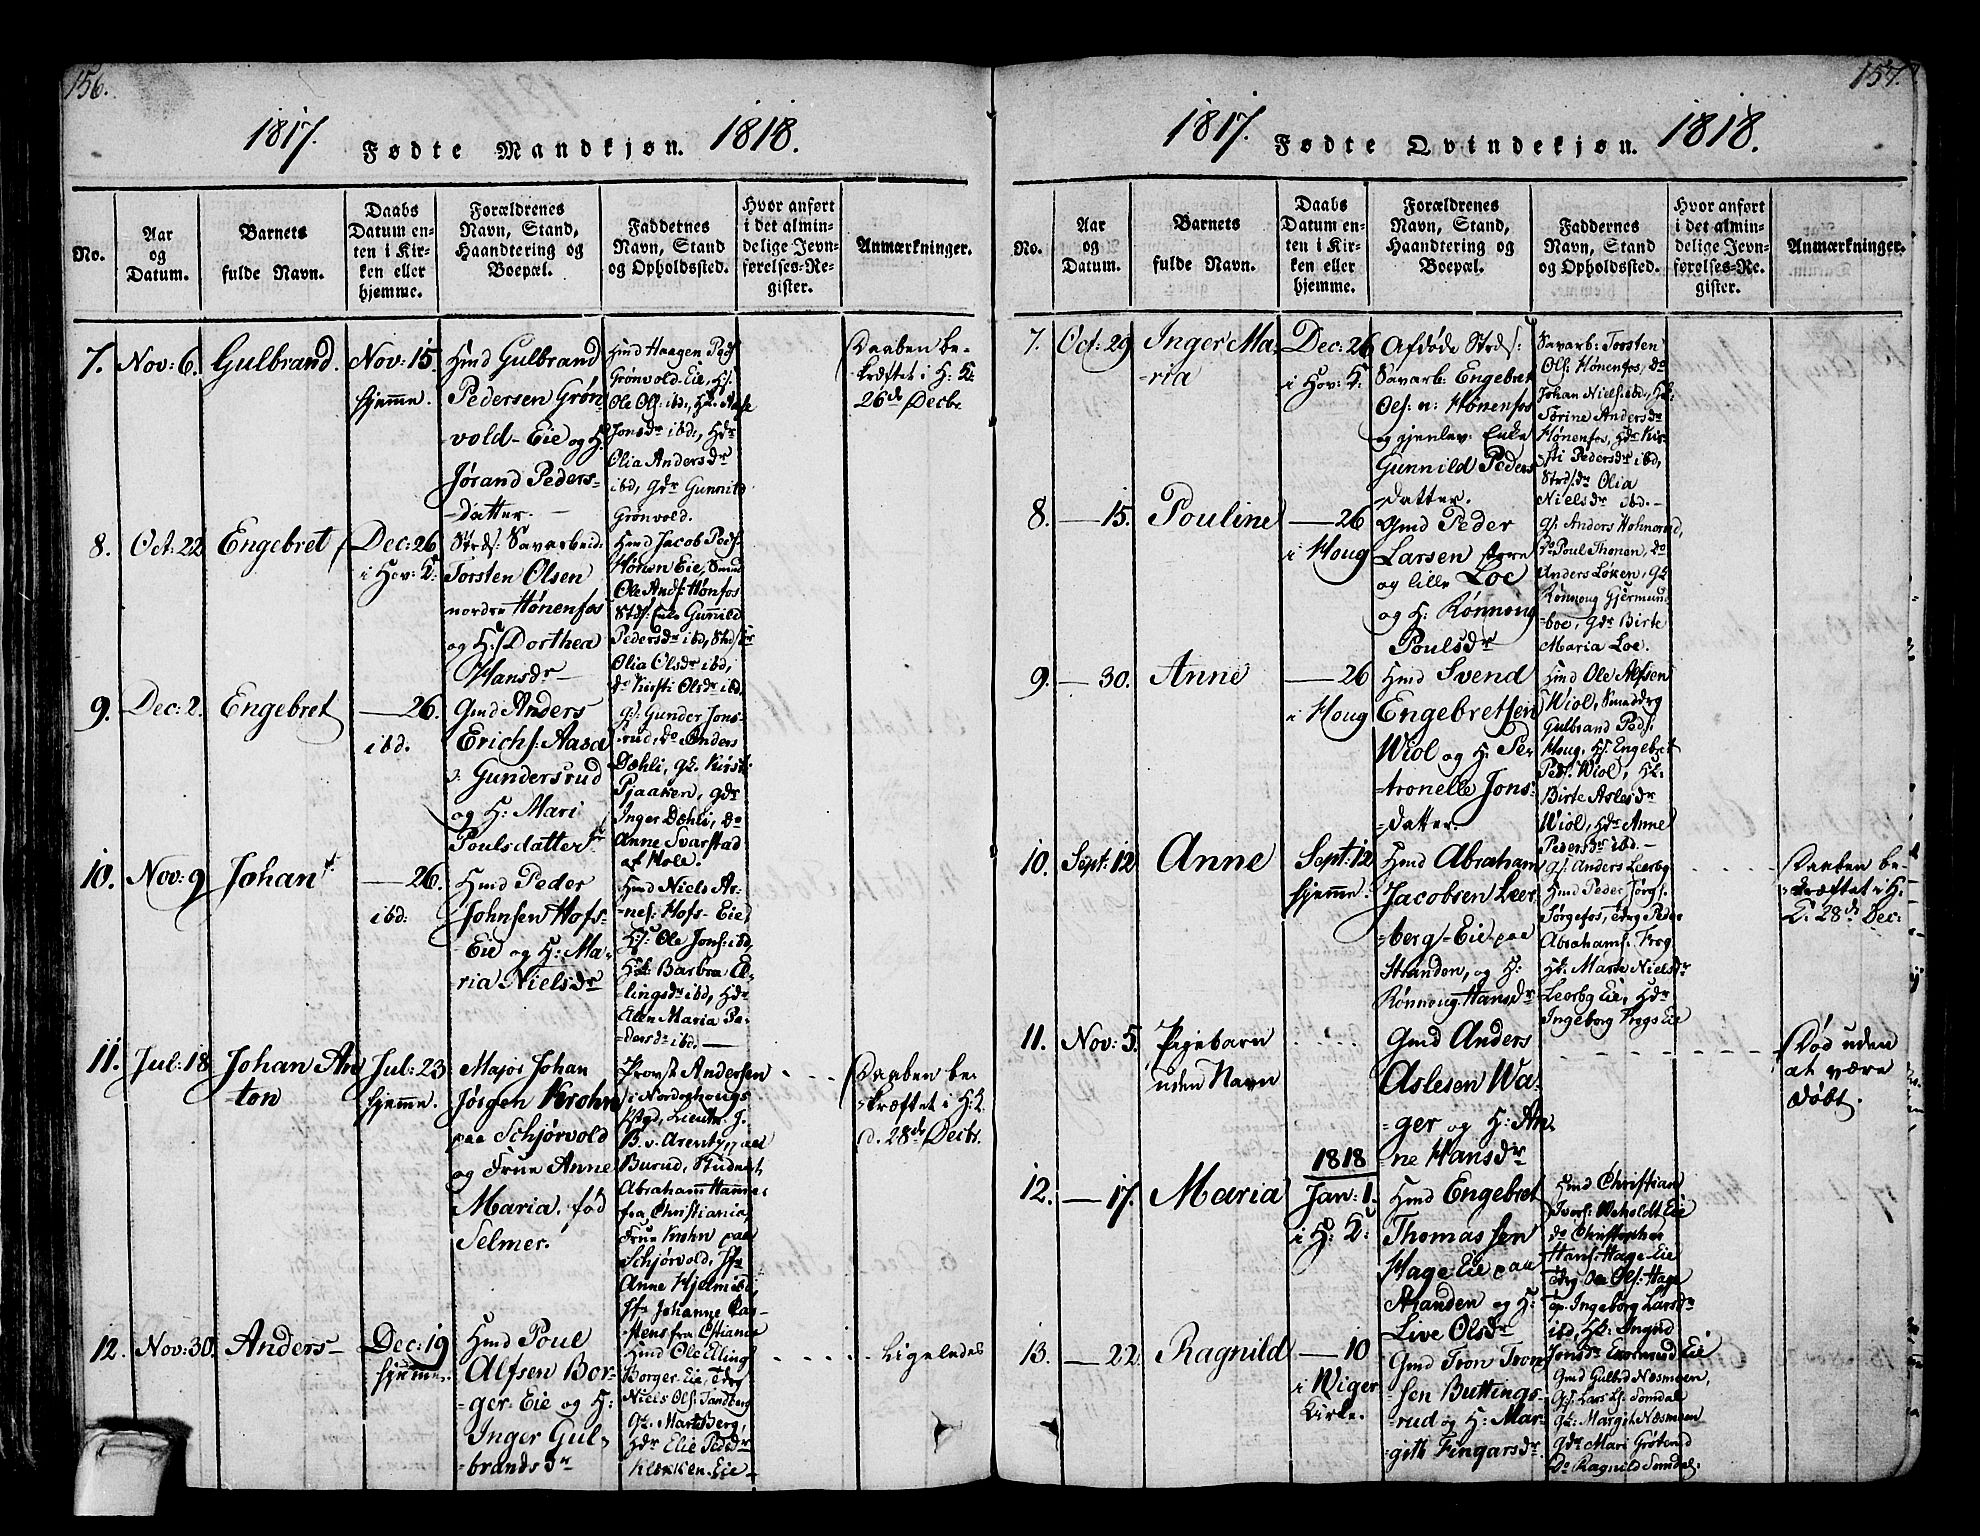 156.
1817. Fødte Mandkjøn. 1818.
No.
Aar
og
Datum.
Barnets
fulde Navn.
Daabs
Datum en-
ten i Kir-
ken eller
hjemme.
Forældrenes
Navn, Stand,
Haandtering og
Boepæl.
Faddernes
Navn, Stand
og Opholdssted.
Hvor anført
i det almin-
delige Jevn-
førelses-Re-
gister.
Anmærkninger.
7. Nov: 6. Gulbrand.
Nov: 15.
hjemme.
Hmd Gulbrand
Pedersen Grøn-
vold-Eie og H:
Jørand Peders-
datter.
Hmd Haagen Peds:
Grønvold-Eie,
Ole Ols: ibd:,
Jonsdr ibd:, Hdr
Olia Andersdr
ibd, Gdr Gunnild
Grønvold.
Daaben be-
kræftet i H: K:
26de Decbr.
8. Oct: 22 Engebret
Dec: 26
i Hov: K:
Strds: Savarbeid:
Torsten Olsen
nordre Hønenfos
og H: Dorthea
Hansdr
Hmd Jacob Peds:
Hønen Eie,
Ole Ands: Hønfos
Strds: Enke Gunnild
Pedersdr ibd,
Olia Olsdr ibd,
do Kirsti Olsdr ibd.
9. Dec: 2. Engebret
—26.
ibd.
Gmd Anders
Erichs: Aasa
v: Gundersrud
og H: Mari
Poulsdatter
Gs: Gunder Jons-
rud, do Anders
Dæhli, Gk. Kirsti
Pjaaken, Gdr
Inger Dæhli, do
Anne Svarstad
af Hole.
10. Nov: 9 Johan
—26.
ibd:
Hmd Peder
Johnsen Hofs-
Eie og H: Ma-
ria Nielsdr
Hmd Niels Ar-
nes: Hofs-Eie,
Hs: Ole Jons: ibd,
Hk: Barbra El-
lingsdr ibd, Hdr
Elen Maria Pe-
dersdr ibd.
11. Jul: 18 Johan An-
ton
Jul: 23
hjemme.
Major Johan
Jørgen Krohn
paa Schjørvold
og Frue Anne
Maria, fød
Selmer.
Provst Andersen
i Nordrehougs
Pstgd, Lieutn: J.
B. v. Arentz, paa
Burud, Student
Abraham Hamme:
fra Christiania,
Frue Krohn paa
Schjørvold, Jfr
Anne Hjelm ibd,
Jfr Johanne Cas-
tens fra Chstiania
Daaben be-
kræftet i H: K:
d. 28de Decbr.
12. Nov: 30. Anders
Dec: 19
hjemme.
Hmd Poul
Alfsen Bor-
ger Eie og H:
Inger Gul-
brandsdr
Hmd Ole Elling
Borger-Eie,
Niels Ols: Sandberg
Gk. Marte Berg,
Hdr Elie Pedsdr
Klækken-Eie
Ligeledes
157.
1817. Fødte Qvindekjøn. 1818.
No.
Aar
og
Datum.
Barnets
fulde Navn.
Daabs
Datum en-
ten i Kir-
ken eller
hjemme.
Forældrenes
Navn, Stand,
Haandtering og
Boepæl.
Faddernes
Navn, Stand
og Opholdssted.
Hvor anført
i det almin-
delige Jevn-
førelses-Re-
gister.
Anmærkninger.
7. Oct: 29 Inger Ma-
ria
Dec: 26
i Hov: K:
Afdøde Strds:
Savarb: Engebret
Ols: n: Hønenfos
og gjenlev: Enke
Gunnild Peders
datter.
Savarb: Torsten
Ols: Hønenfos, do
Johan Niels: ibd, Hk:
Torine Andersdr
Hønenfos, Hdr Kir-
sti Pedersdr ibd,
Strdsdr Olia
Nielsdr ibd.
8. —15. Pouline
—26
i Houg
Gmd Peder
Larsen store
og lille Loe
og H: Rønnoug
Poulsdr
Gs: Anders Hohnerud,
do Poul Thonen, do
Anders Løken, Gk
Rønnoug Gjermund
boe, Gdr Birte
Maria Loe.
9. —30. Anne
—26
i Houg
Hmd Svend
Engebretsen
Wiol og H: Pe-
tronelle Jons-
datter.
Hmd Ole Alfsen
Wiol, Smeddrg
Gulbrand Peds:
Houg, Hs: Engebret
Peds: Wiol, Hk:
Birte Aslesdr
Wiol, Hdr Anne
Pedersdr ibd.
10. Sept: 12 Anne
Sept: 12
hjemme.
Hmd Abraham
Jacobsen Leer-
berg-Eie paa
Stranden, og H:
Rønnoug Hansdr
Gs: Anders Leerbg
Hmd Peder Jørgs:
Sørgefos, Tdrg Peder
Abrahams: Frog
Hk. Marte Nielsdr
Leerbg Eie, Hdr
Ingeborg Frogs Eie
Daaben be-
kræftet i H:
K: 28de Dec:
11. Nov: 5. Pigebarn
uden Navn
Gmd Anders
Aslesen Wa-
ger og H: An-
ne Hansdr
Død uden
at være
døbt.
12. —17. Maria
1818
Jan: 1.
i H: K:
Hmd Engebret
Thomassen
Hage-Eie paa
Stranden og H:
Live Olsdr
Hmd Christian
Ivers: Veholdt Eie
do Christopher
Hans: Hage-Eie
Tdrg Ole Ols: Hage
Ingeborg Larsdr
ibd, Hk: Ingrid
Jonsdr Eie
13. —22. Ragnild
—10
i Wiger
Kirke.
Gmd Tron Tron-
sen Buttings-
rud og H: Mar-
gith Fingarsdr
Gmd Gulbrd Næsmoen,
Gs: Lars Somdal
Gk: Margith Næsmoen
Gdr Mari Grøterud
do Ragnild Somdal.